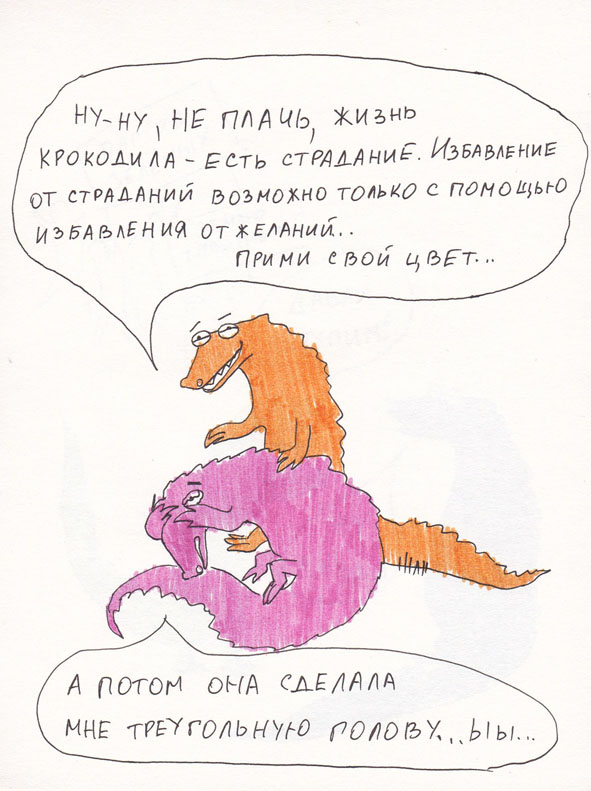 НУ-НУ, НЕ ПЛАЧЬ, ЖИЗНЬ
КРОКОДИЛА - ЕСТЬ СТРАДАНИЕ. ИЗБАВЛЕНИЕ
ОТ СТРАДАНИЙ ВОЗМОЖНО ТОЛЬКО С ПОМОЩЬЮ
ИЗБАВЛЕНИЯ ОТ ЖЕЛАНИЙ..
ПРИМИ СВОЙ ЦВЕТ...
А ПОТОМ ОНА СДЕЛАЛА
МНЕ ТРЕУГОЛЬНУЮ ГОЛОВУ...ЫЫ...